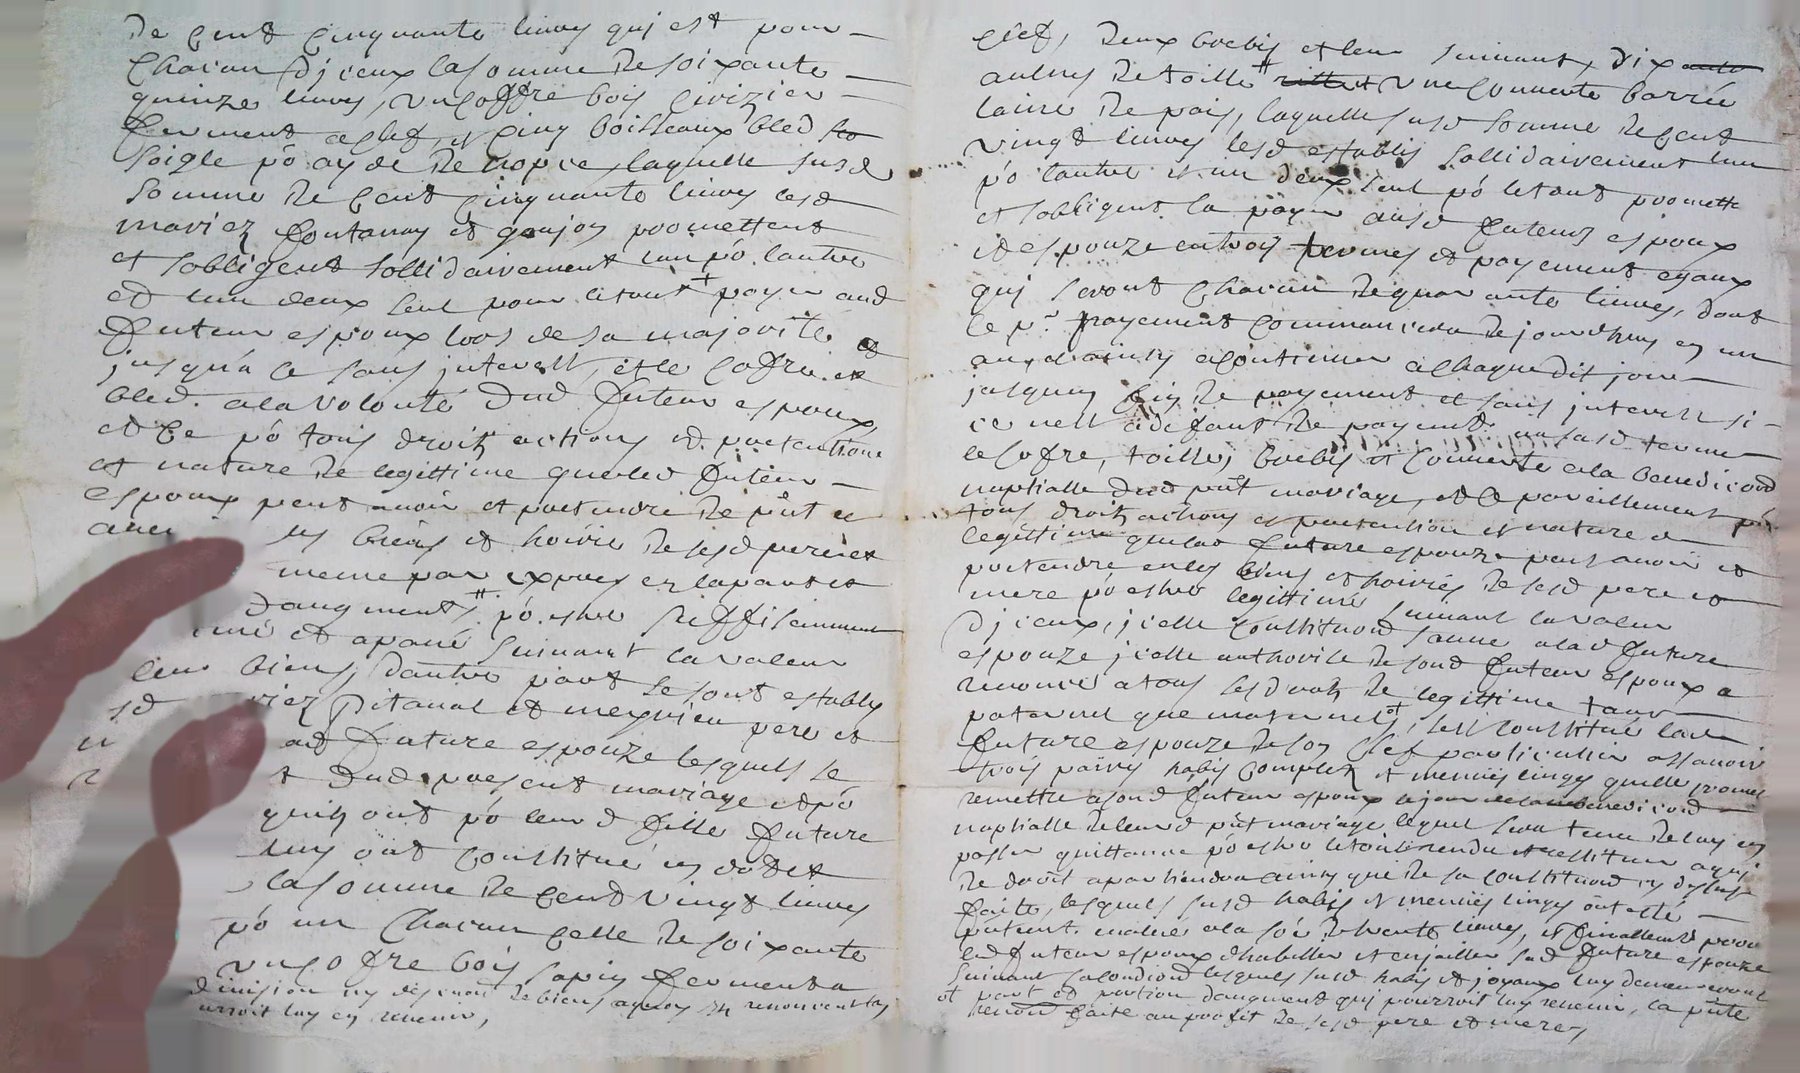 de cent cinquante livres quj est pour
chacun d'jceux la somme de soixante
quinze livres, un coffre bois cirizier
ferment a clef, et cinq boisseaux bled
soigle pô ayde de nopce, laquelle susd
somme de cent cinquante livres lesd
mariez fontanay et goujon promettent
et sobligent sollidairement lun pô lautre
et lun deux seul pour letout payer aud
futeur espoux lors de sa majorité et
jusqu'a ce sans jnterest, et le cofre et
bled a la volonté dud futeur espoux
et ce pô tous droitz actions et pretentions
et nature de legittime queled futeur
espoux peut avoir et pretendre de pñt et
advenir les biens et hoirie de sesd pere et
meme par expres en lapart et
daugment pô estre sueffisemment
et apané suivant la valeur
leur biens, dautre part se sont establys
sd mariez pitaval et meyrieu pere et
aud future espouze lesquels se
dud present mariage et pô
quilz ont pô leurd fille future
luy ont constitué en dot et
la somme de cent vingt livres
pô un chacun celle de soixante
un cofre bois sapin fermenta
division en des biens renonceront
urroit luy en revenir,
clef, deux brebis et leur suivant, dix
aulnes de toille une couverte barrée
laine de pais, laquelle susd somme de cent
vingt livres lesd establis sollidairement lun
pô lautre et un deux seul pô letout promette
et sobligent la payer ausd futeurs espoux
et espouze entrois termes et payement egaux
quj seront chacun de quarante livres, dont
le pr payement commancera de jourdhuy en un
an, et ainsy acontinuer a chaque dit jour
jusquau fin de payement et sans jnterest si
ce nest a defaut de payement aususd terme
le cofre, toilles, brebis et couverte ala benediction
nuptialle dud pñt mariage, et ce pareillement pô
tous droitz actions et pretention et nature de
legittime quelad future espouze peut avoir et
pretendre en les biens et hoiries de sesd pere et
mere pô estre legittimé suivant la valeur
djceux, jcelle constitution faitte alad future
espouze jcelle authorisé de sond futeur espoux a
renoncé a tous lesdroitz de legittime tant
paternel que maternel, sest constitué lad
future espouze de son chef particulier assavoir
trois paires habis complets et menues linges quelle promet
remettre a sond futeur espoux le jour de la benediction
nuptialle de leurd pñt mariage lequel sera tenu de luy en
passer quittance pô estre letout rendu et restitué a quj
de droit apartiendra ainsy que de sa constitution cy dessus
faite, lesquels susd habis et menues linges ont esté
ala somme de trente livres, et finallement
led futeur espoux dhabiller et enjoailler sad future espouze
suivant sa condition lesquels susd habis et joyaux luy demeureront
et part et portion daugment quj pourroit luy revenir, la pñte
faite au proffit de sesd pere et mere,